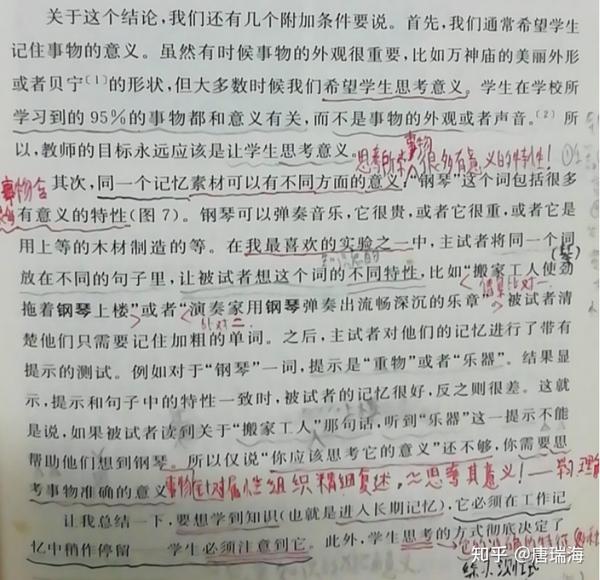 关于这个结论,我们还有几个附加条件要说。首先,我们通常希望学生
记住事物的意义。虽然有时候事物的外观很重要,比如万神庙的美丽外形
或者贝宁〔1〕的形状,但大多数时候我们希望学生思考意义。学生在学校所
学习到的95%的事物都和意义有关,而不是事物的外观或者声音。〔2〕所
以,教师的目标永远应该是让学生思考意义。
事物
很多有意义的特性!
其次,同一个记忆素材可以有不同方面的意义。“钢琴”这个词包括很多
事物含
有意义的特性(图7)。钢琴可以弹奏音乐,它很贵,或者它很重,或者它是
用上等的木材制造的等。在我最喜欢的实验之一中,主试者将同一个词
放在不同的句子里,让被试者想这个词的不同特性,比如“搬家工人使劲
拖着钢琴上楼”或者“演奏家用钢琴弹奏出流畅深沉的乐章”。被试者清
楚他们只需要记住加粗的单词。之后,主试者对他们的记忆进行了带有
提示的测试。例如对于“钢琴”一词,提示是“重物”或者“乐器”。结果显
示,提示和句子中的特性一致时,被试者的记忆很好,反之则很差。这就
是说,如果被试者读到关于“搬家工人”那句话,听到“乐器”这一提示不能
帮助他们想到钢琴。所以仅说“你应该思考它的意义”还不够,你需要思
考事物准确的意义
组织精细复述,≈思考其意义!
让我总结一下,要想学到知识(也就是进入长期记忆),它必须在工作记
忆中稍作停留——学生必须注意到它。此外,学生思考的方式彻底决定了
知乎 @唐瑞海